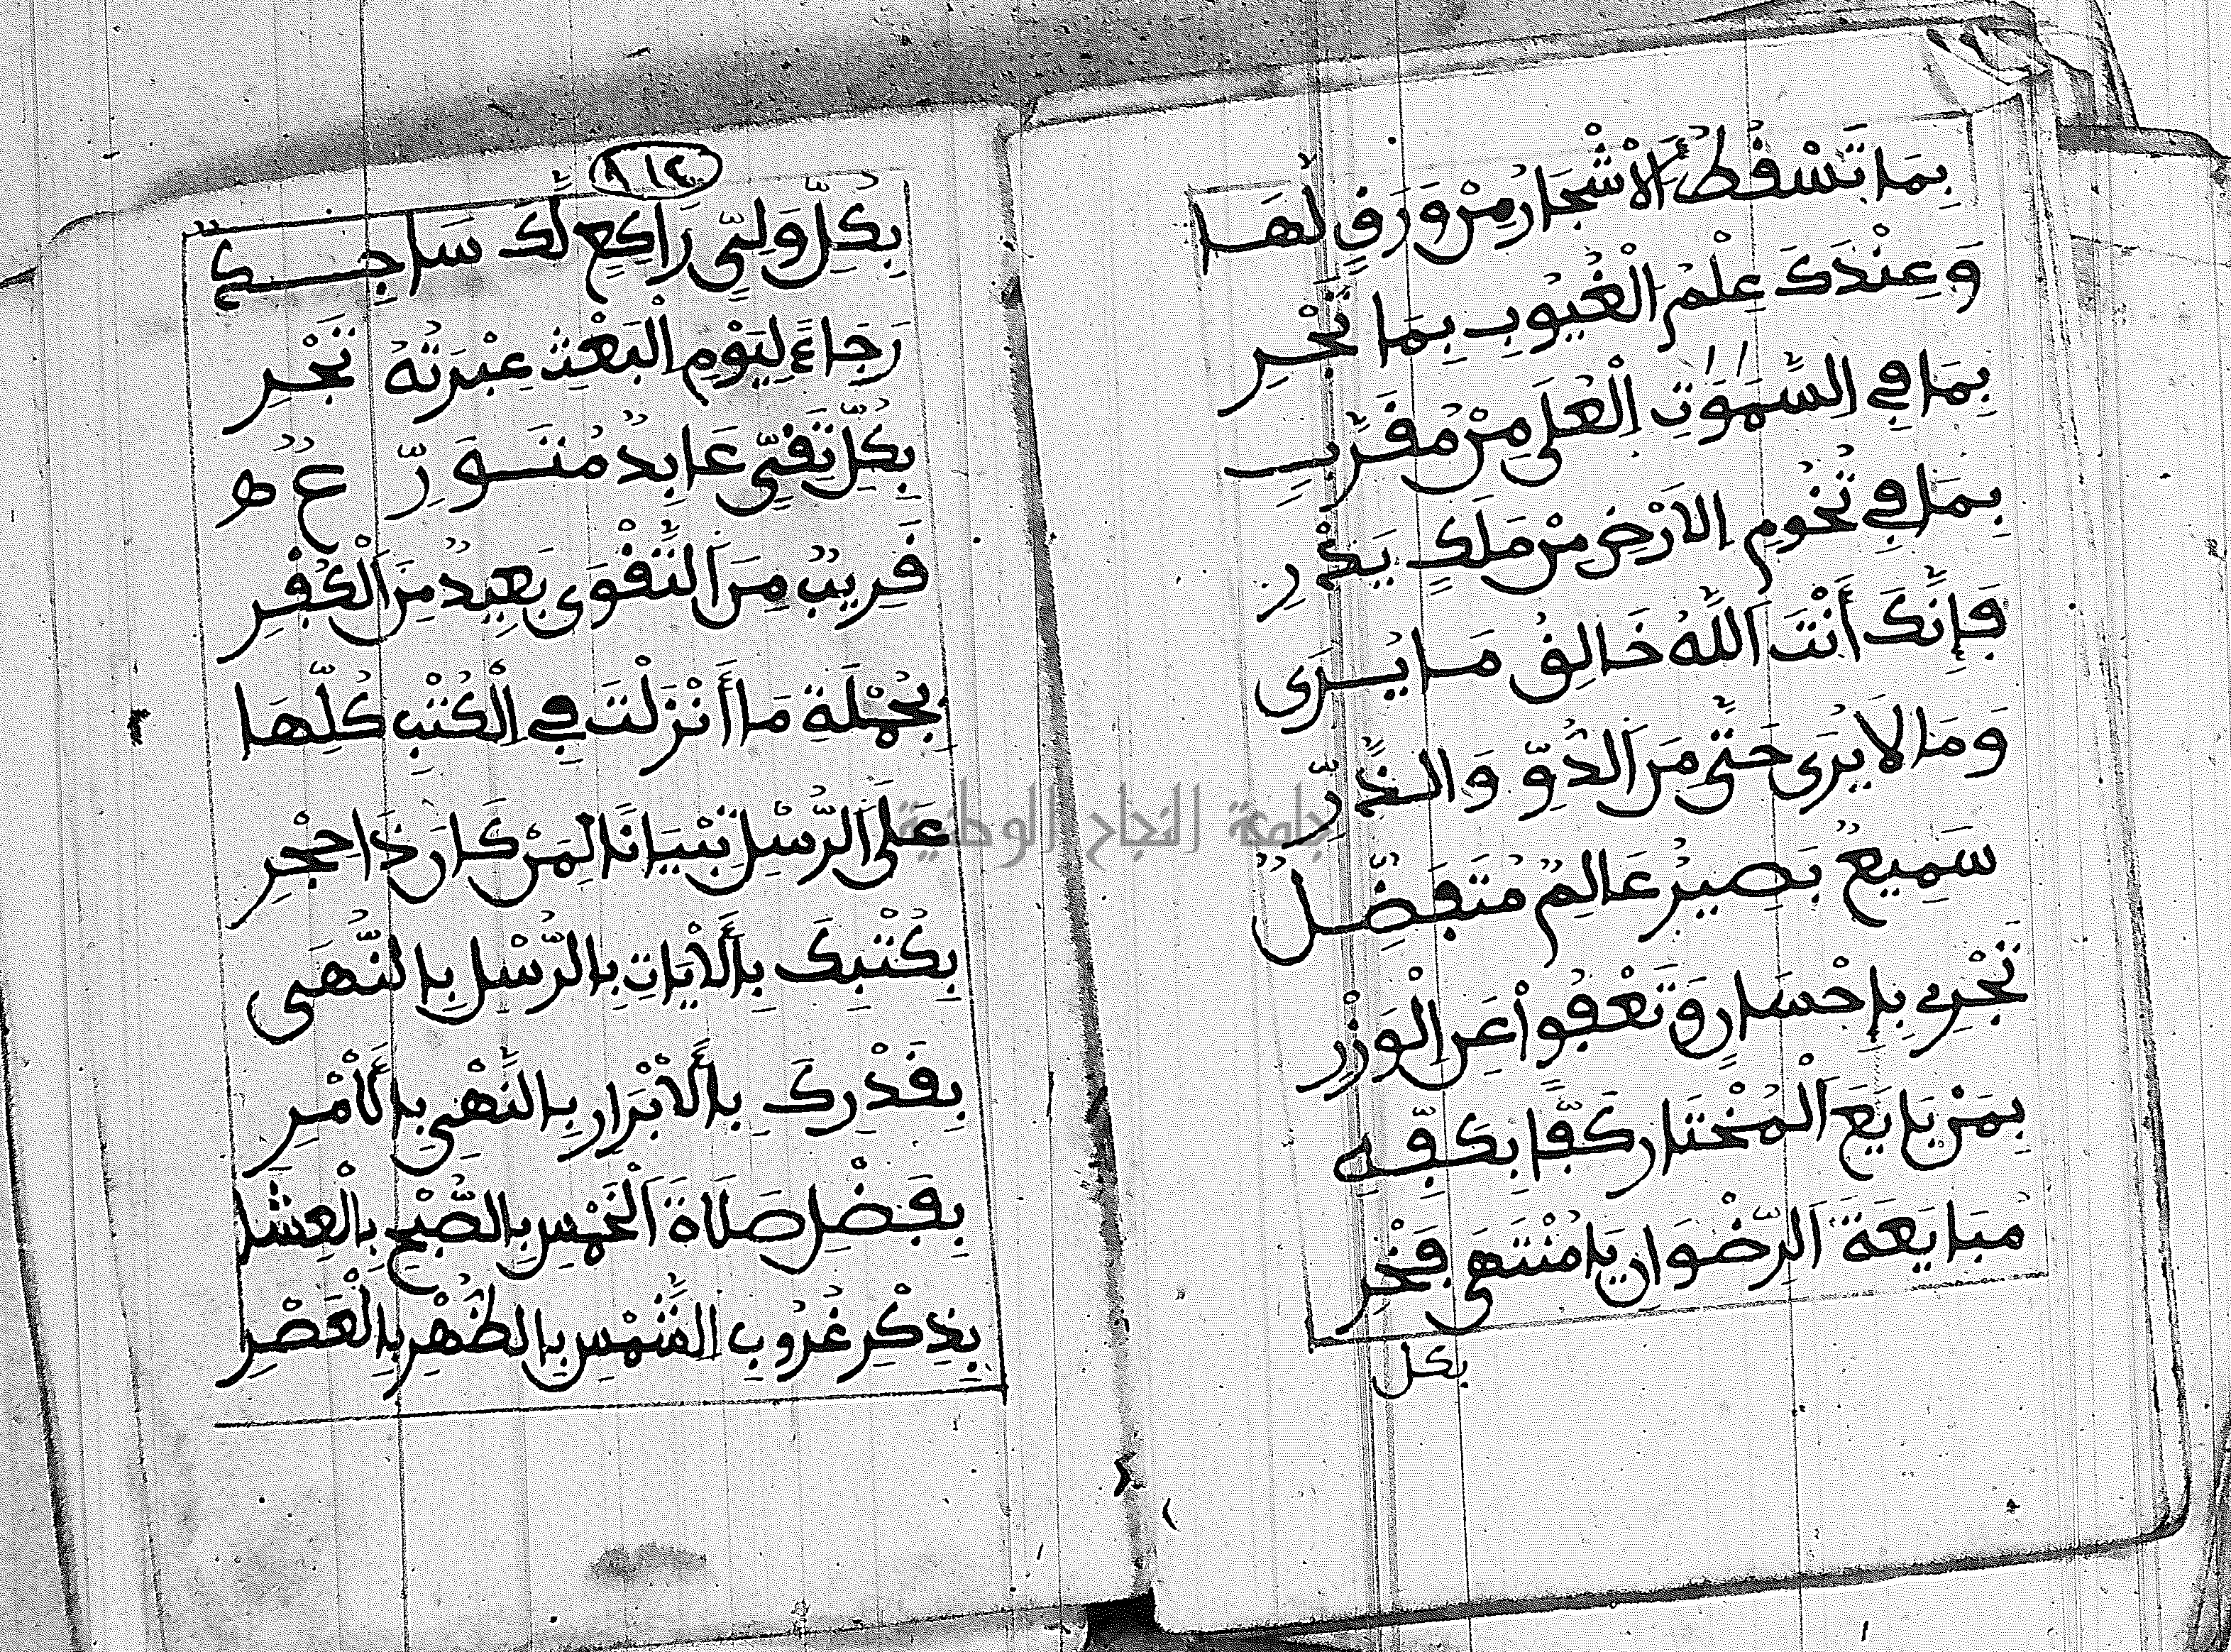 بِمَا تَسْقُطُ الْأَشْجَارُ مِنْ وَرَقٍ لَهَا
وَعِنْدَكَ عِلْمُ الْغُيُوبِ بِمَا تَجْرِ
بِمَا فِي السَّمَوَتِ الْعُلَى مِنْ مُقَرَّبِ
بِمَا فِي تُخُومِ الَارْضِ مِنْ مَلَكٍ يَدْرِ
فَإِنَّكَ أَنْتَ اللَّهُ خَالِقُ مَا يُرَى
وَمَا لَا يُرَى حَتَّى مِنَ الدُّوِّ وَالذَّرِّ
سَمِيعٌ بَصِيرٌ عَالِمٌ مُتَفَضِّلٌ
تَجْرِي بِإِحْسَانٍ وَتَعْفُوا عَنِ الْوِزْرِ
بِمَنْ بَايَعَ الْمُخْتَارَ كَفًّا بِكَفِّهِ
مُبَايَعَةَ الرِّضْوَانِ يَا مُنْتَهَى فَخْرِ
بكل
٨١٤
بِكُلِّ وَلِيٍّ رَاكِعٍ لَكَ سَاجِدٌ
رَجَاءً لِيَوْمِ الْبَعْثِ عِبْرَتُهُ تَجْرِ
بِكُلِّ تَقِيٍّ عَابِدٌ مُتَوَرِّعٌ ه
قَرِيبٌ مِنَ التَّقْوَى بَعِيدٌ مِنَ الْكُفْرِ
بِجُمْلَةِ مَا أَنْزَلْتَ فِي الْكُتْبِ كُلِّهَا
عَلَى الرُّسْلِ تِبْيَانًا لِمَنْ كَانَ ذَا حِجْرِ
بِكُتْبِكَ بِالْأَيَاتِ بِالرُّسْلِ بِالنُّهَى
بِقَدْرِكَ بِالْأَبْرَارِ بِالنَّهْيِ بِالْأَمْرِ
بِفَضْلِ صَلَاةَ الْخَمْسِ بِالصُّبْحِ بِالْعِشَا
بِذِكْرِ غُرُوبِ الشَّمْسِ بِالظُّهْرِ بِالْعَصْرِ
جامعة النجاح الوطنية